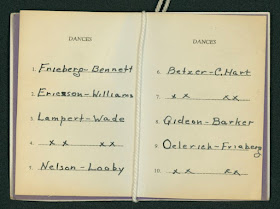 DANCES
1. Frieberg-Bennett
2. Ericsson-Williams
3. Lampert-Wade
4. xx xx
5. Nelson-Looby
DANCES
6. Betzer-C. Hart
7. xx xx
8. Gideon-Barker
9. Oelerich-Frieberg
10. xx xx